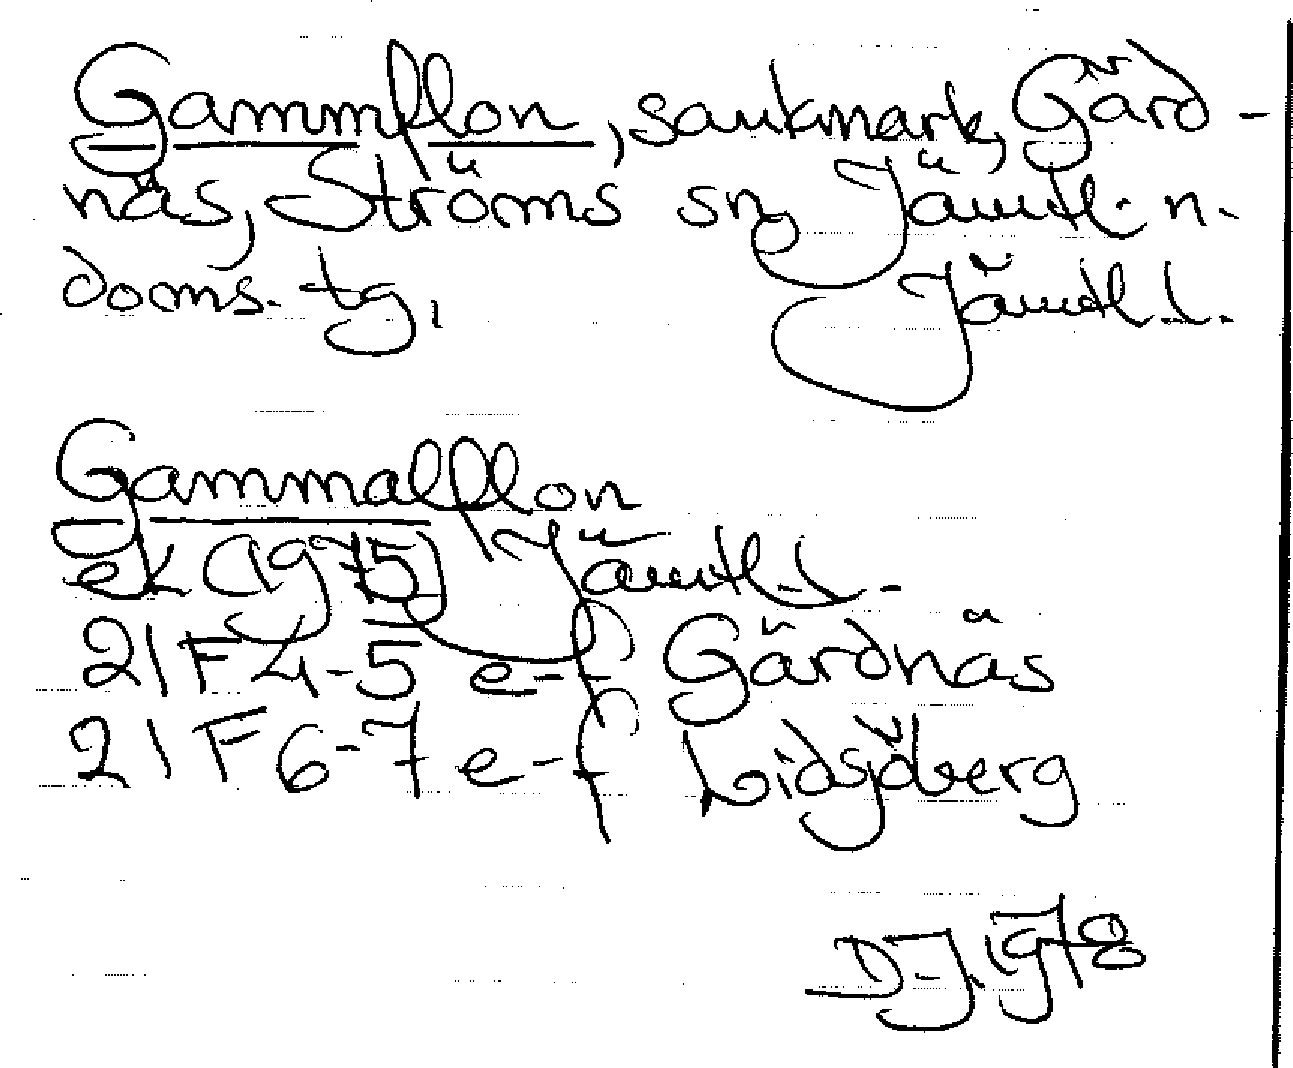 Gammflon, sankmark, Gärd-
näs, Ströms sn, Jämtl. n.
doms. tg, Jämtl. l.
Gammalflon
ek (1975) Jämtl. l.
21 F 4-5 e-f Gärdnäs
21 F 6-7 e-f Lidsjöberg
D-J. 1978